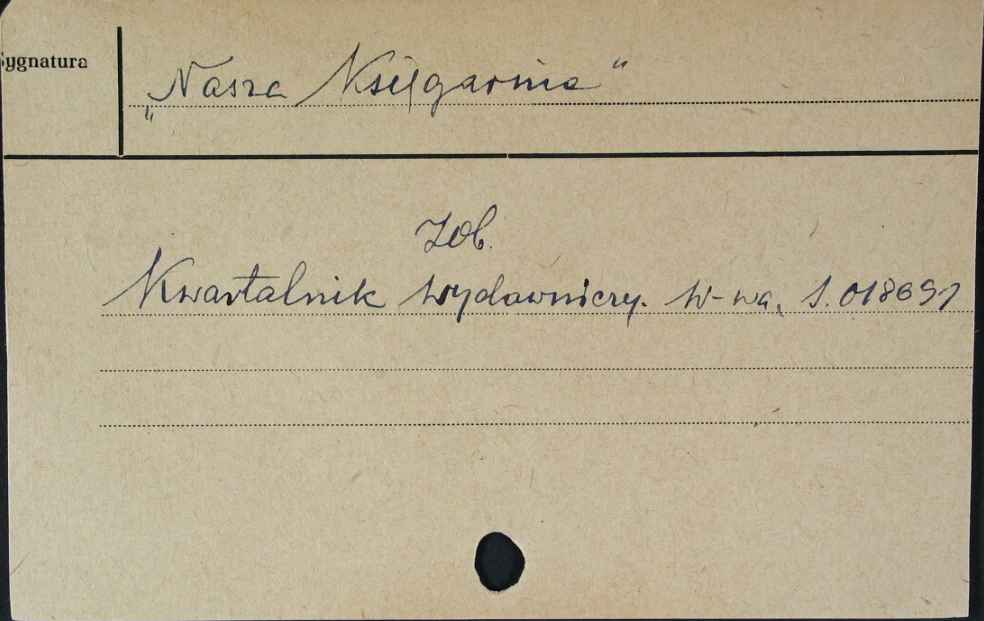 Sygnatura
„Nasza Księgarnia“
Zob.
Kwartalnik wydawniczy. W-wa, S.018691